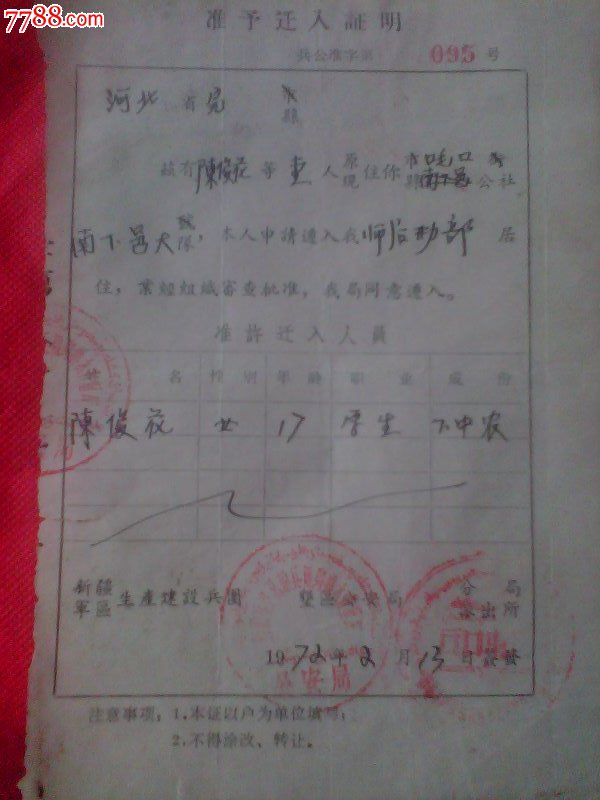 7788.com
准予迁入証明
兵公准字第 095 号
河北省完 县
縣
兹有陳俊花等壹人原现住你市縣 口 公社
南下邑大隊，本人申請遷入我师后勤部居
住，業經組織審查批准，我局同意遷入。
准許迁入人員
姓名 性別 年齡 職業 成份
陳俊花 女 17 學生 下中农
新疆軍區生產建設兵團 墾區公安局 分局派出所
1972年2月13日签發
公安局
注意事項：1，本证以户为单位填写；
2，不得涂改、转让。